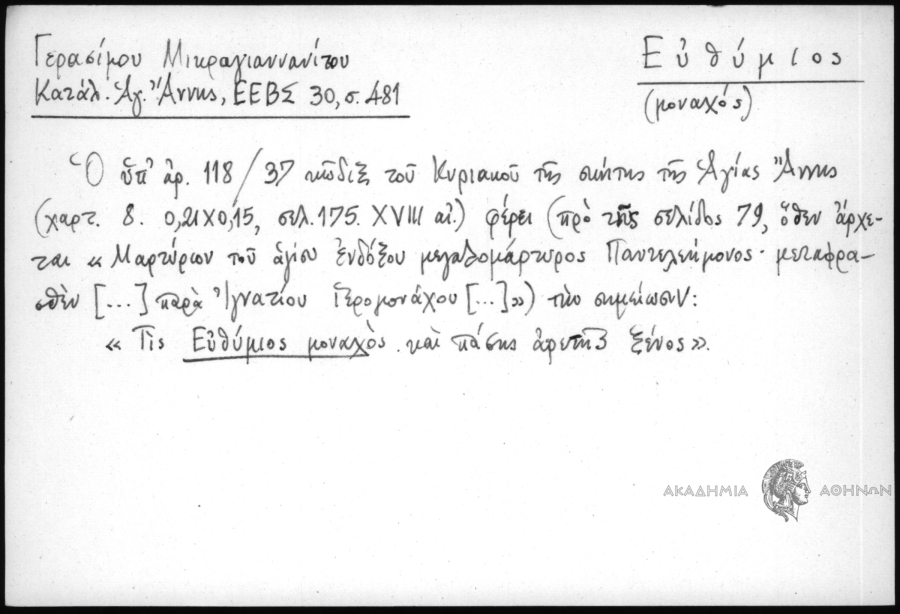 Γερασίμου Μικραγιαννανίτου
Κατάλ. Ἁγ. Ἄννης, ΕΕΒΣ 30, σ. 481
Εὐθύμιος
(μοναχός)
Ὁ ὑπ' ἀρ. 118/37 κῶδιξ τοῦ Κυριακοῦ τῆς σκήτης τῆς Ἁγίας Ἄννης
(χαρτ. 8. 0,21Χ0,15, σελ. 175. XVIII αἰ.) φέρει (πρὸ τῆς σελίδος 79, ὅθεν ἄρχε-
ται « Μαρτύριον τοῦ ἁγίου ἐνδόξου μεγαλομάρτυρος Παντελεήμονος· μεταφρα-
σθὲν [...] παρὰ Ἰγνατίου Ἱερομονάχου [...] ») τὴν σημείωσιν:
« Τὶς Εὐθύμιος μοναχὸς καὶ πάσης ἀρετῆς ξένος ».
ΑΚΑΔΗΜΙΑ ΑΘΗΝΩΝ